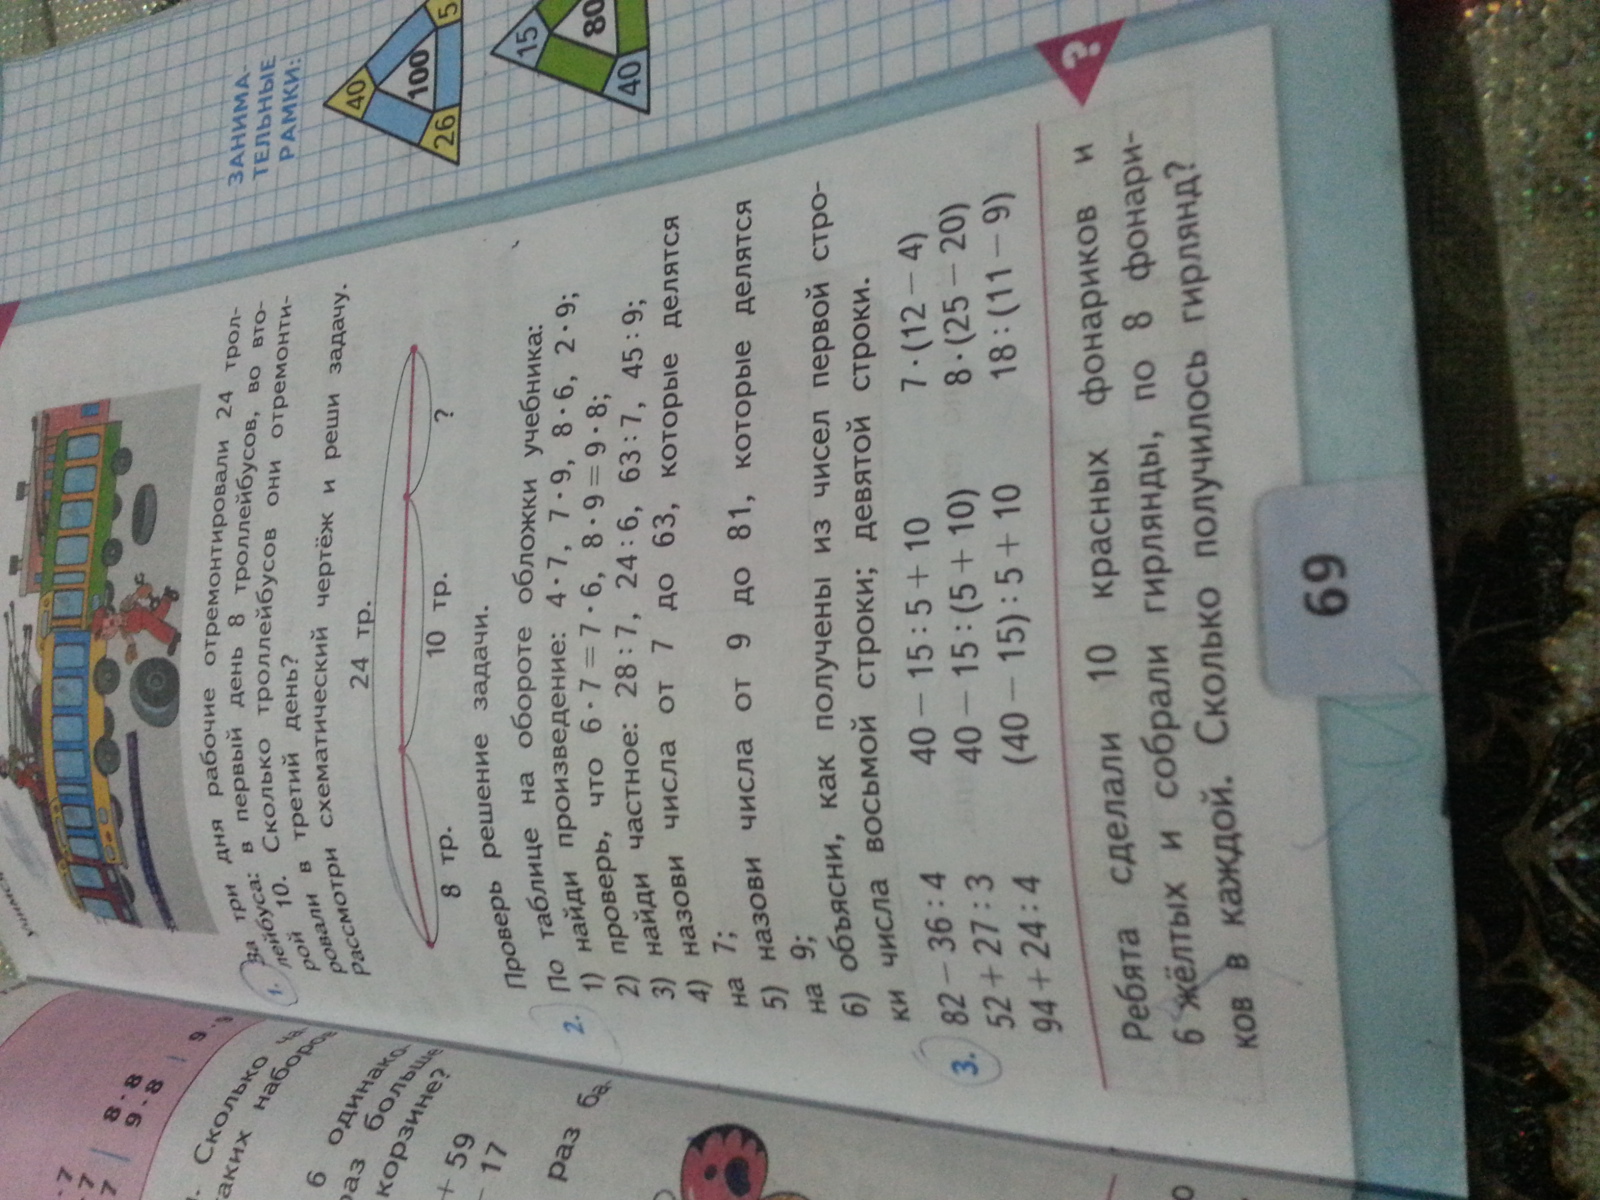 1. За три дня рабочие отремонтировали 24 трол-
лейбуса: в первый день 8 троллейбусов, во вто-
рой 10. Сколько троллейбусов они отремонти-
ровали в третий день?
Рассмотри схематический чертёж и реши задачу.
24 тр.
8 тр. 10 тр. ?
Проверь решение задачи.
2. По таблице на обороте обложки учебника:
1) найди произведение: 4 · 7, 7 · 9, 8 · 6, 2 · 9;
2) проверь, что 6 · 7 = 7 · 6, 8 · 9 = 9 · 8;
3) найди частное: 28 : 7, 24 : 6, 63 : 7, 45 : 9;
4) назови числа от 7 до 63, которые делятся
на 7;
5) назови числа от 9 до 81, которые делятся
на 9;
6) объясни, как получены из чисел первой стро-
ки числа восьмой строки; девятой строки.
3. 82 − 36 : 4 40 − 15 : 5 + 10 7 · (12 − 4)
52 + 27 : 3 40 − 15 : (5 + 10) 8 · (25 − 20)
94 + 24 : 4 (40 − 15) : 5 + 10 18 : (11 − 9)
Ребята сделали 10 красных фонариков и
6 жёлтых и собрали гирлянды, по 8 фонари-
ков в каждой. Сколько получилось гирлянд?
?
69
ЗАНИМА-
ТЕЛЬНЫЕ
РАМКИ:
40
100
26 5
15
80
40
8 · 8
9 · 8
Сколько
таких наборов
6 одинако
раз больше
корзине?
+ 59
− 17
раз